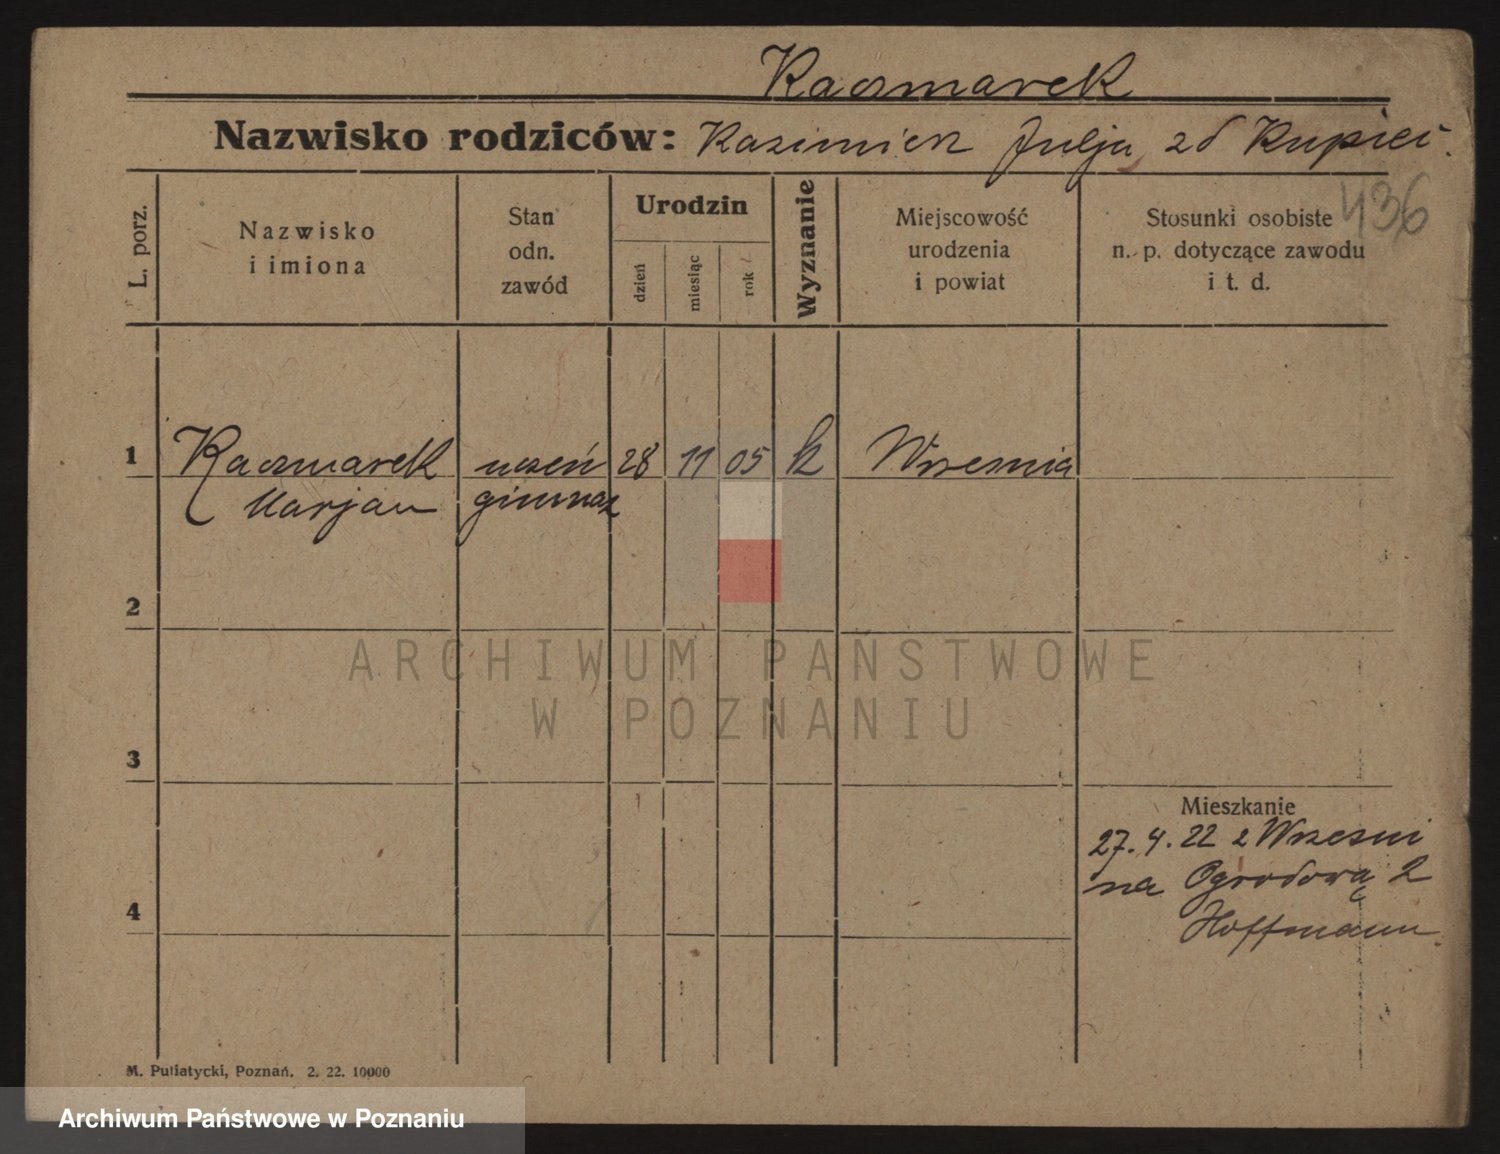 Kaczmarek
Nazwisko rodziców: Kazimierz Julja zd Kupiec
436
L. porz.
Nazwisko
i imiona
Stan
odn.
zawód
Urodzin
dzień
miesiąc
rok
Wyznanie
Miejscowość
urodzenia
i powiat
Stosunki osobiste
n. p. dotyczące zawodu
i t. d.
1 Kaczmarek uczeń 28 11 05 k Wrzesnia
Marjan gimnaz
2
ARCHIWUM PAŃSTWOWE
W POZNANIU
3
Mieszkanie
27. 4. 22 z Wrzesni
na Ogrodową 2
4
Hoffmann
M. Putiatycki, Poznań. 2. 22. 10000
Archiwum Państwowe w Poznaniu